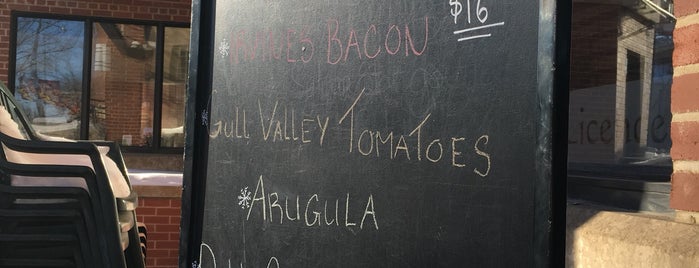 $16
BACON
Gull Valley Tomatoes
Arugula
Licence